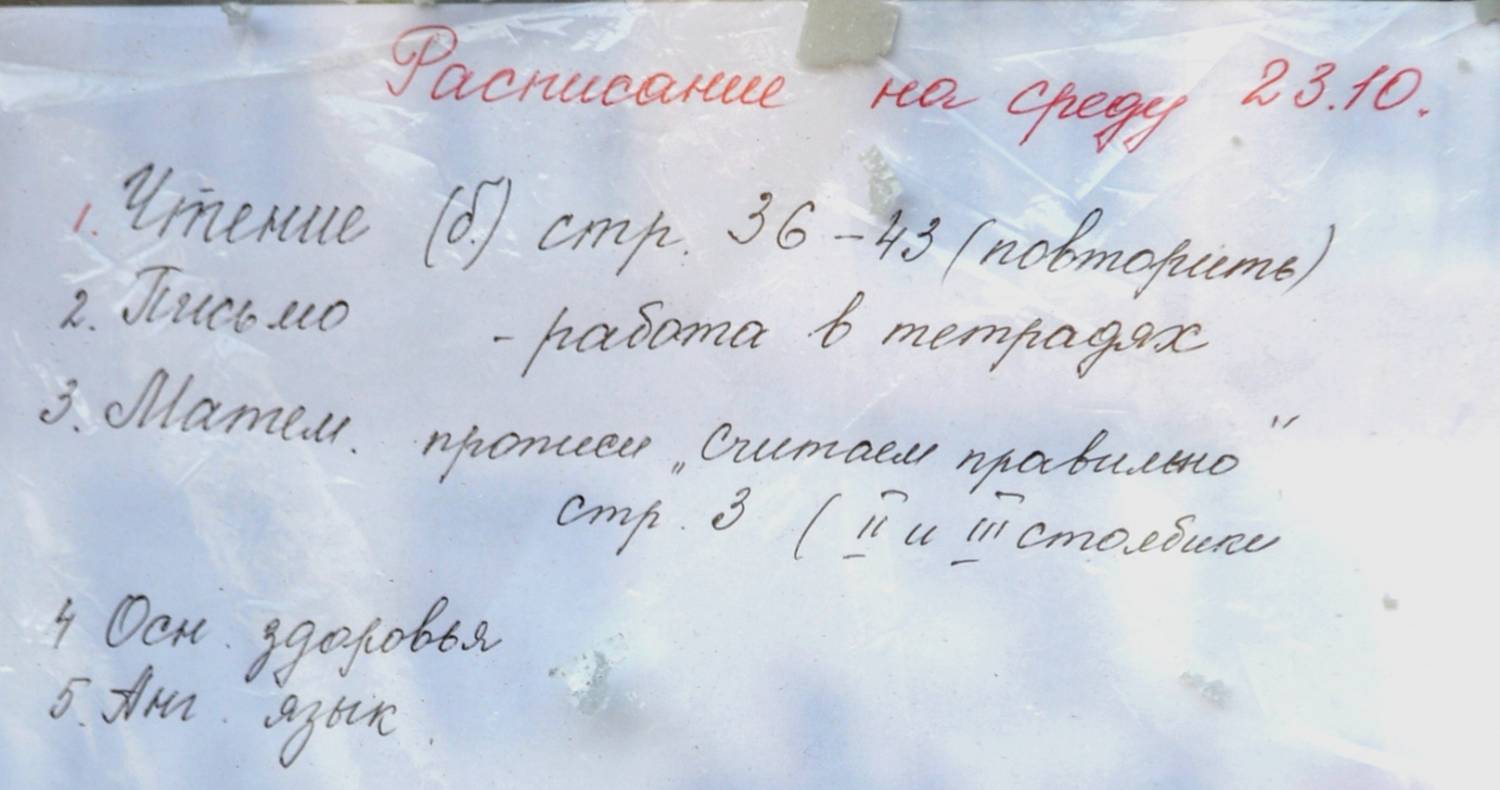 Расписание на среду 23.10.
1. Чтение (б.) стр. 36-43 (повторить)
2. Письмо - работа в тетрадях
3. Матем. прописи „Считаем правильно"
стр. 3 ( II и III столбики
4 Осн. здоровья
5. Анг. язык.